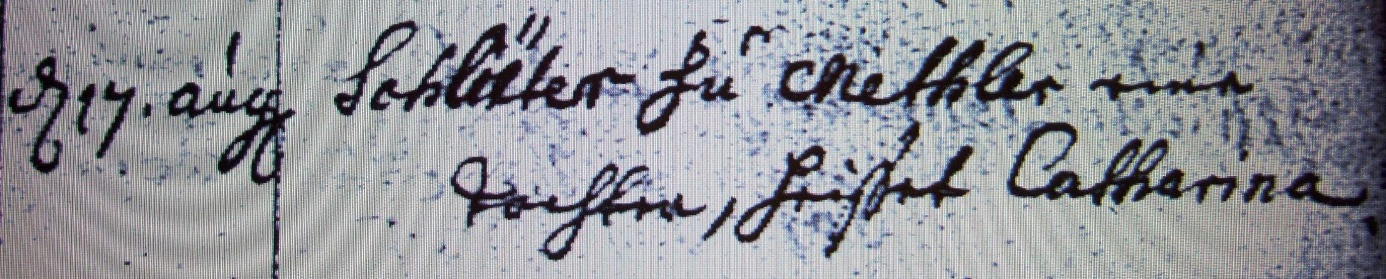 d 17. aug Schlüter zu Methler eine
Tochter, heisset Catharina